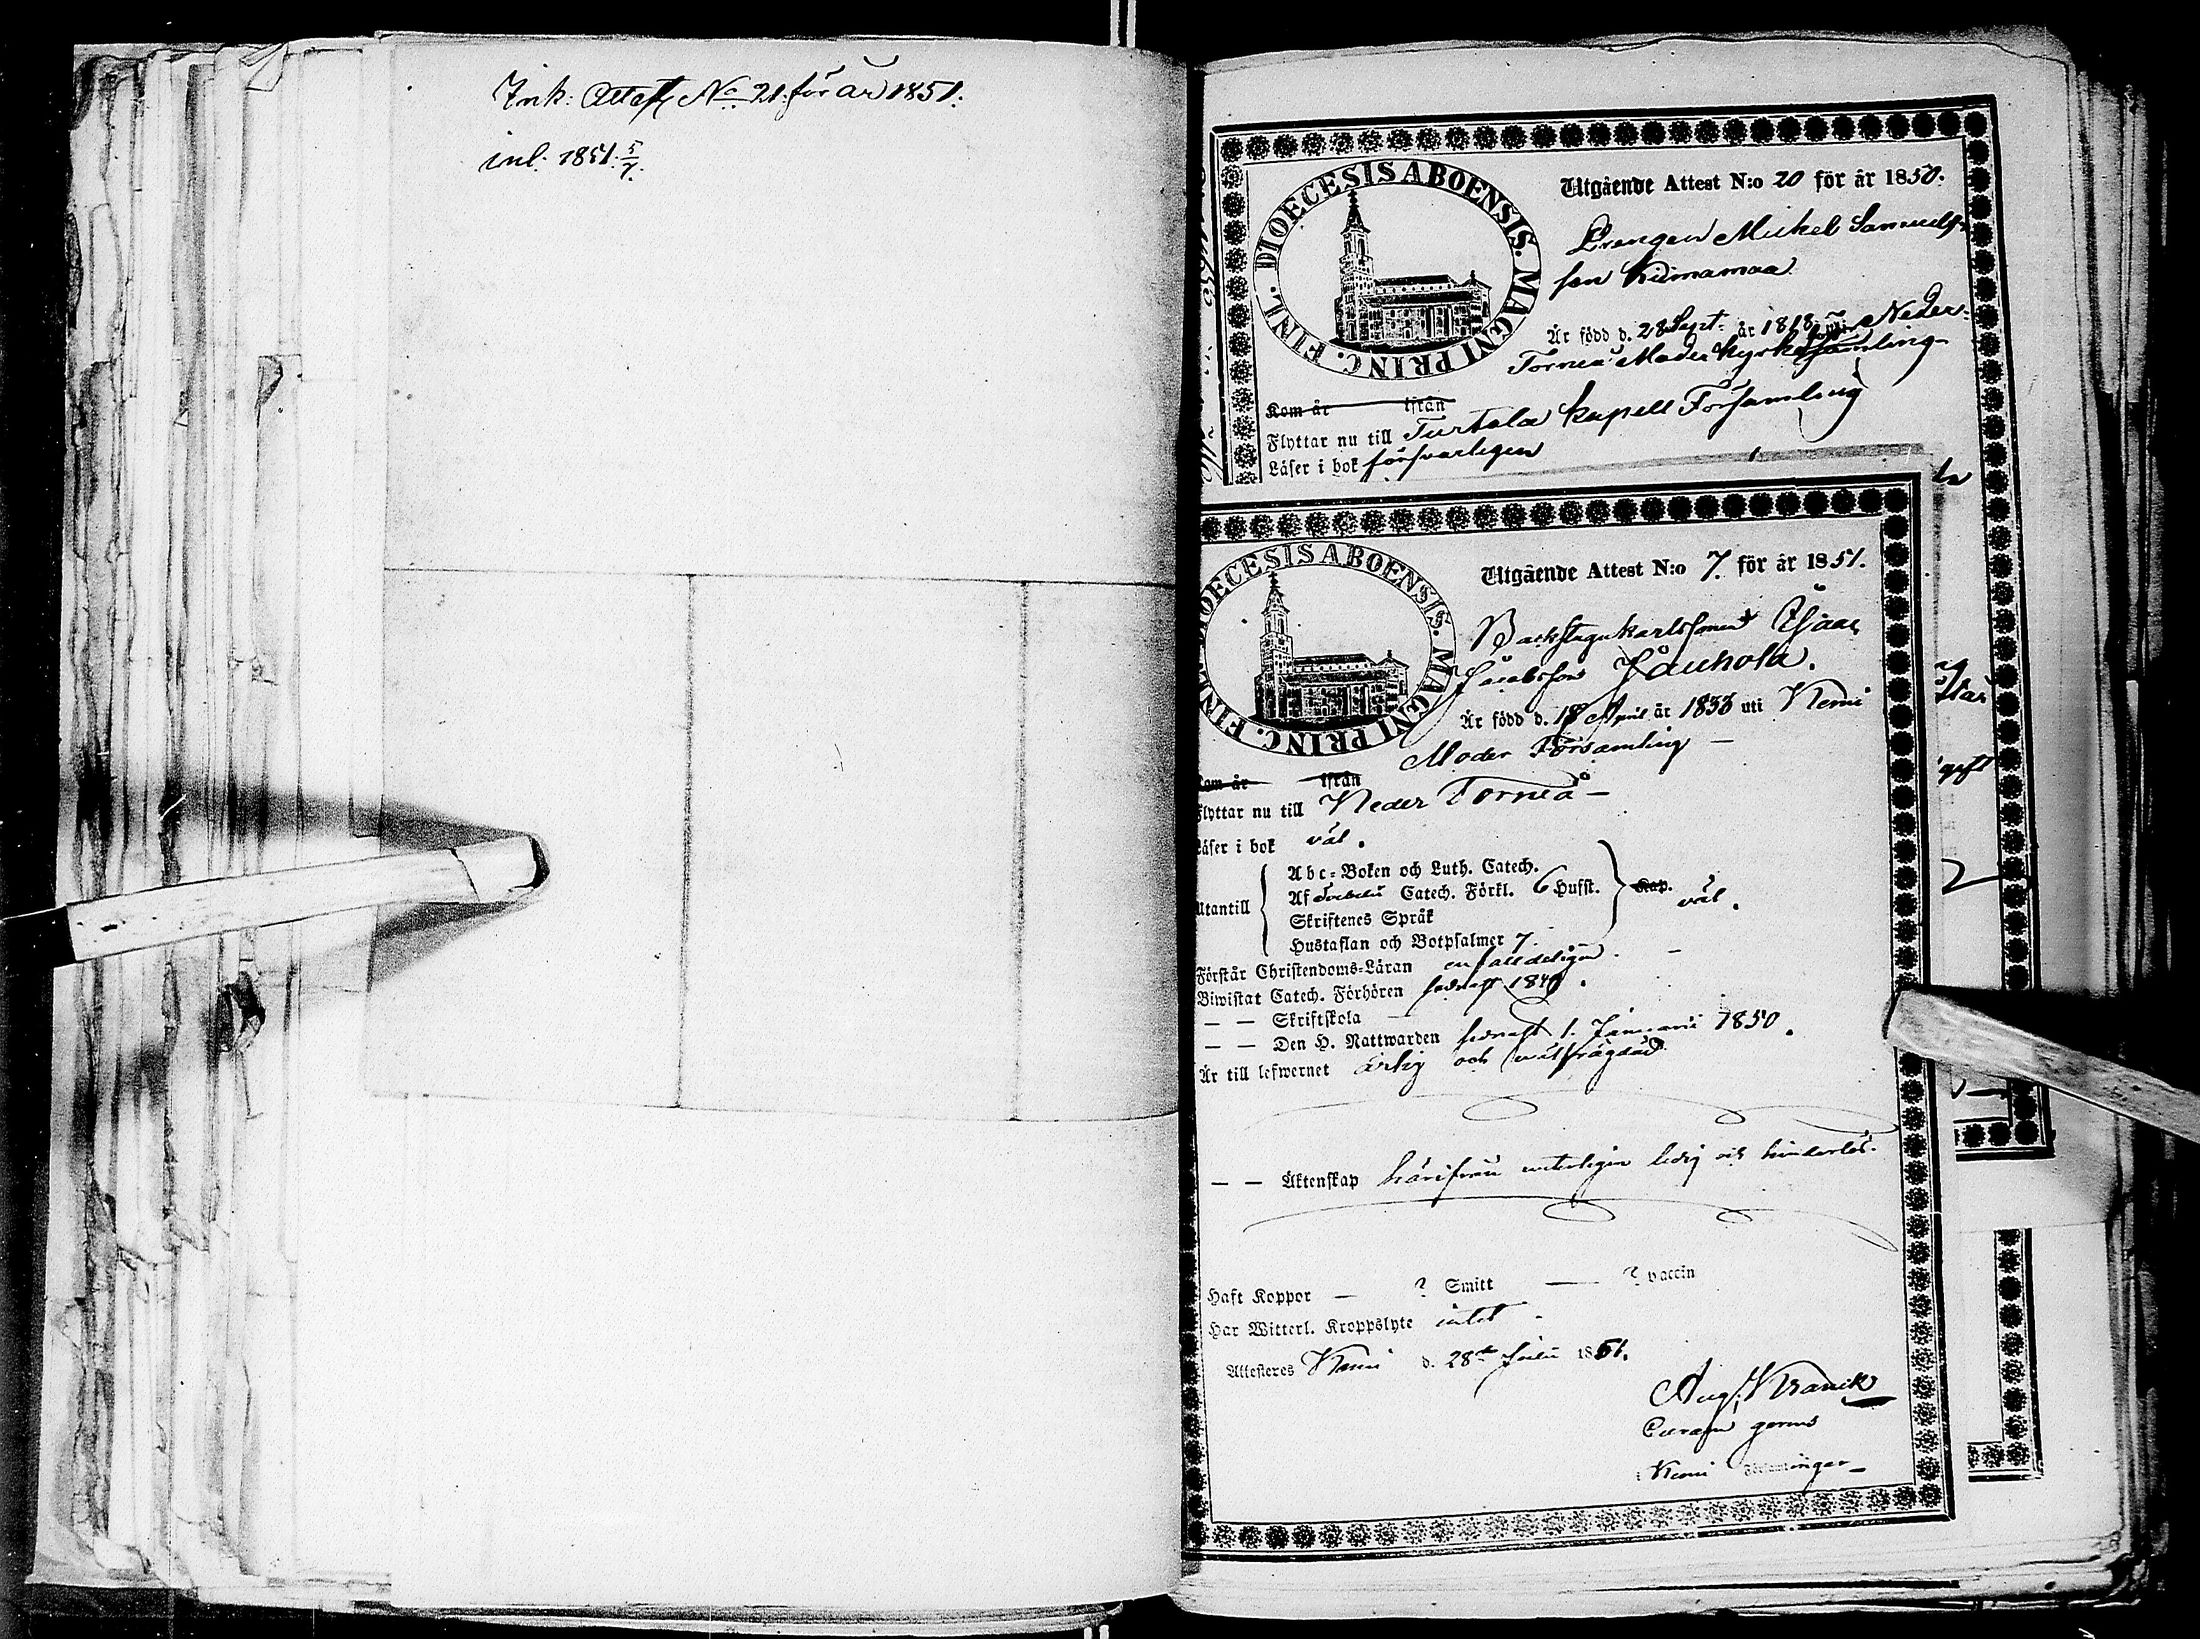 Ink: Attest No 21. för år 1851.
inl. 1851. 5/7.
DIOECESIS ABOENSIS. MAGNI PRINC. FINL.
Utgående Attest N:o 20 för år 1850.
Drengen Mickel Samuels-
son Kiimamaa
Är född d. 28 Sept. år 1818 uti Neder-
Torneå Moderkyrkoförsamling
Kom år ifrån
Flyttar nu till Turtola kapell Församling
Läser i bok försvarligen
DIOECESIS ABOENSIS. MAGNI PRINC. FINL.
Utgående Attest N:o 7. för år 1851.
Backstugukarlssonen Isaac
Jacobsson Jauhola.
Är född d. 18 April år 1833 uti Kemi
Moder Församling —
Kom år ifrån
Flyttar nu till Neder Torneå —
Läser i bok väl.
Utantill
Abc-Boken och Luth. Catech.
Af Svebelii Catech. Förkl. 6 Hufst. Kap. väl.
Skriftenes Språk
Hustaflan och Botpsalmer 7.
Förstår Christendoms-Läran enfaldeligen. —
Biwistat Catech. Förhören sednast 1849.
— — Skriftskola —
— — Den H. Nattwarden sednast 1. Januarii 1850.
Är till lefwernet ärlig och välfrägdad
— — Äktenskap härifrån veterligen ledig och hinderlös.
Haft Koppor — ? Smitt — ? vaccin
Har Witterl. Kroppslyte intet -
Attesteras Kemi d. 28de Junii 1851.
Aug. Kranck
Curam gerens
i Kemi Församlingar —